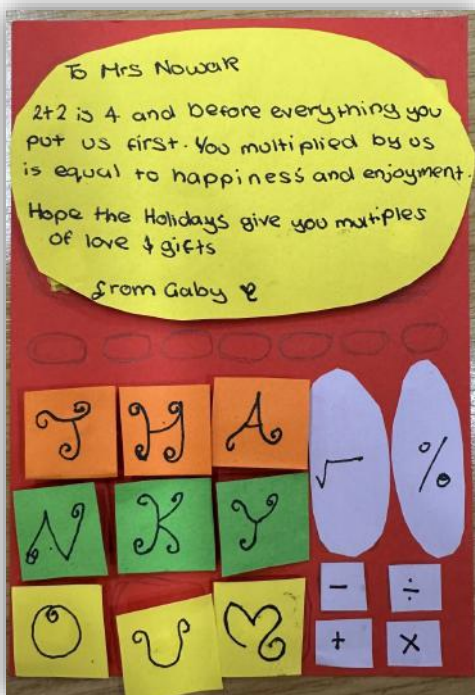 To Mrs Nowak
2+2 is 4 and before everything you
put us first. You multiplied by us
is equal to happiness and enjoyment.
Hope the Holidays give you multiples
of love & gifts
from Gaby
T H A
N K Y
O U
√ %
- ÷
+ ×